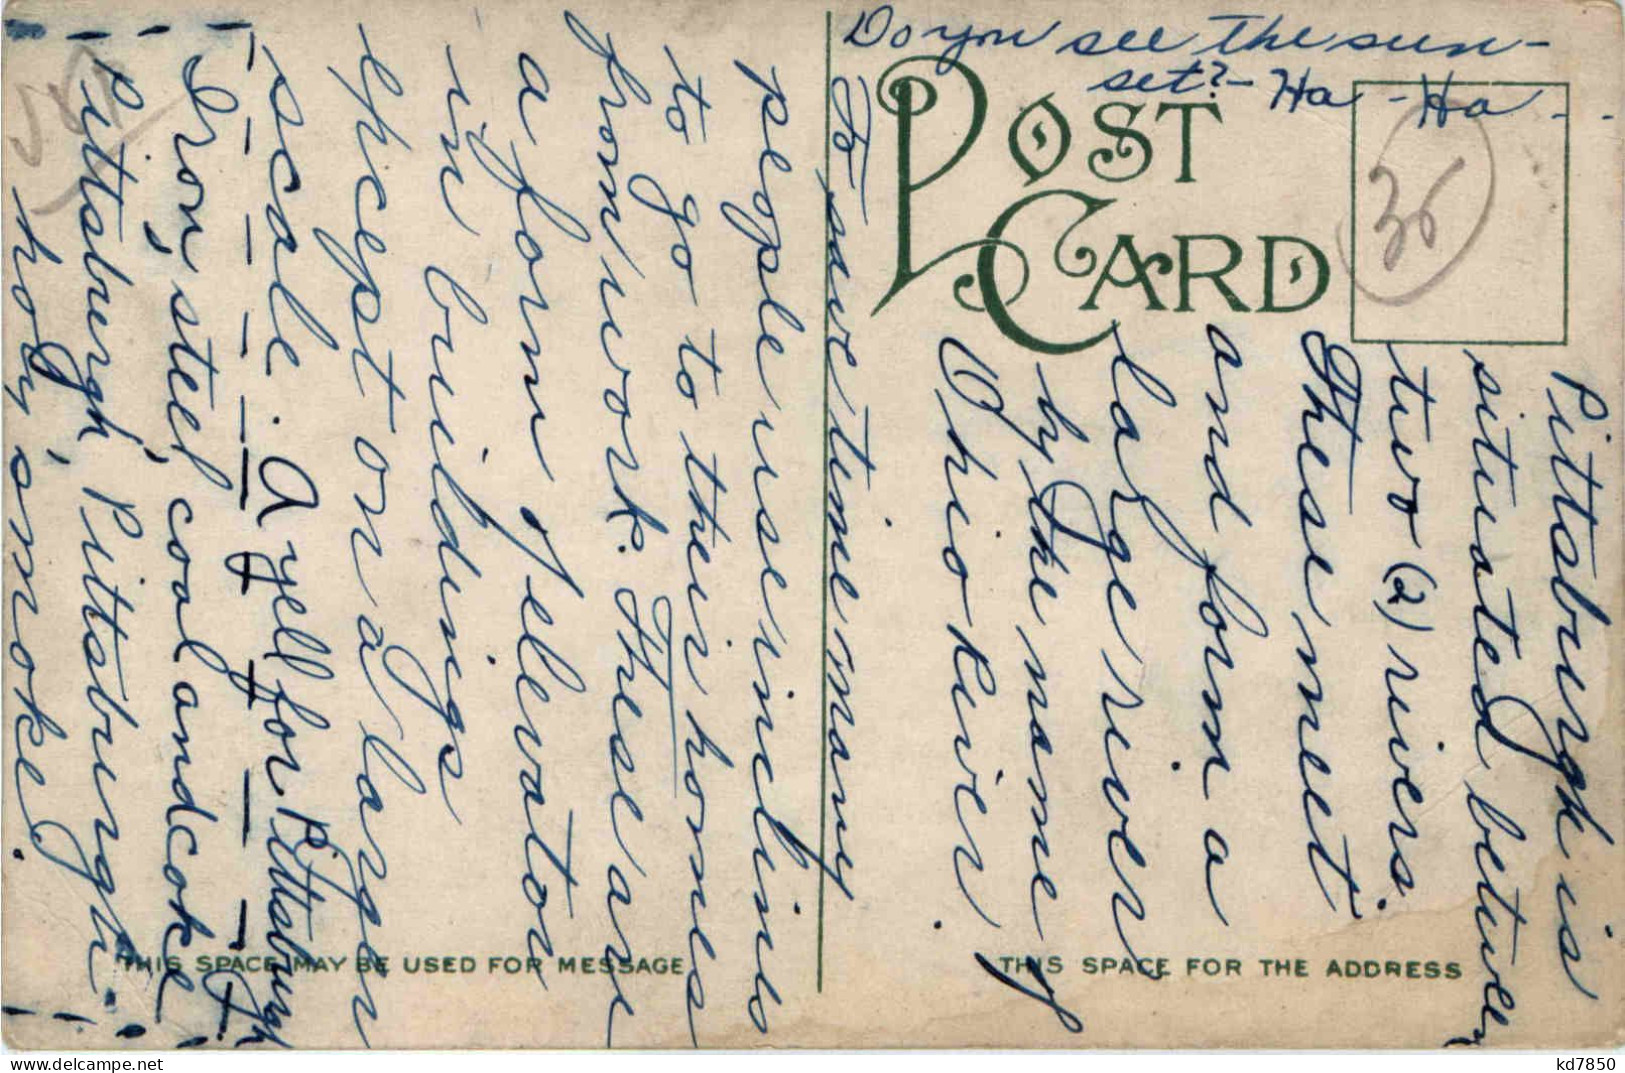 Do you see the sun-
set? - Ha - Ha - - -
POST
CARD
36
Pittsburgh is
situated between
two (2) rivers.
These meet
and form a
large river
by the name of
Ohio River.
To save time many
people use inclines
to go to their homes
from work. These are
a form of elevator
in buildings
except on a larger
scale. A yell for Pittsburgh
Iron, steel, coal and coke
Pittsburgh, Pittsburgh
holy smoke.
THIS SPACE MAY BE USED FOR MESSAGE
THIS SPACE FOR THE ADDRESS
kd7850